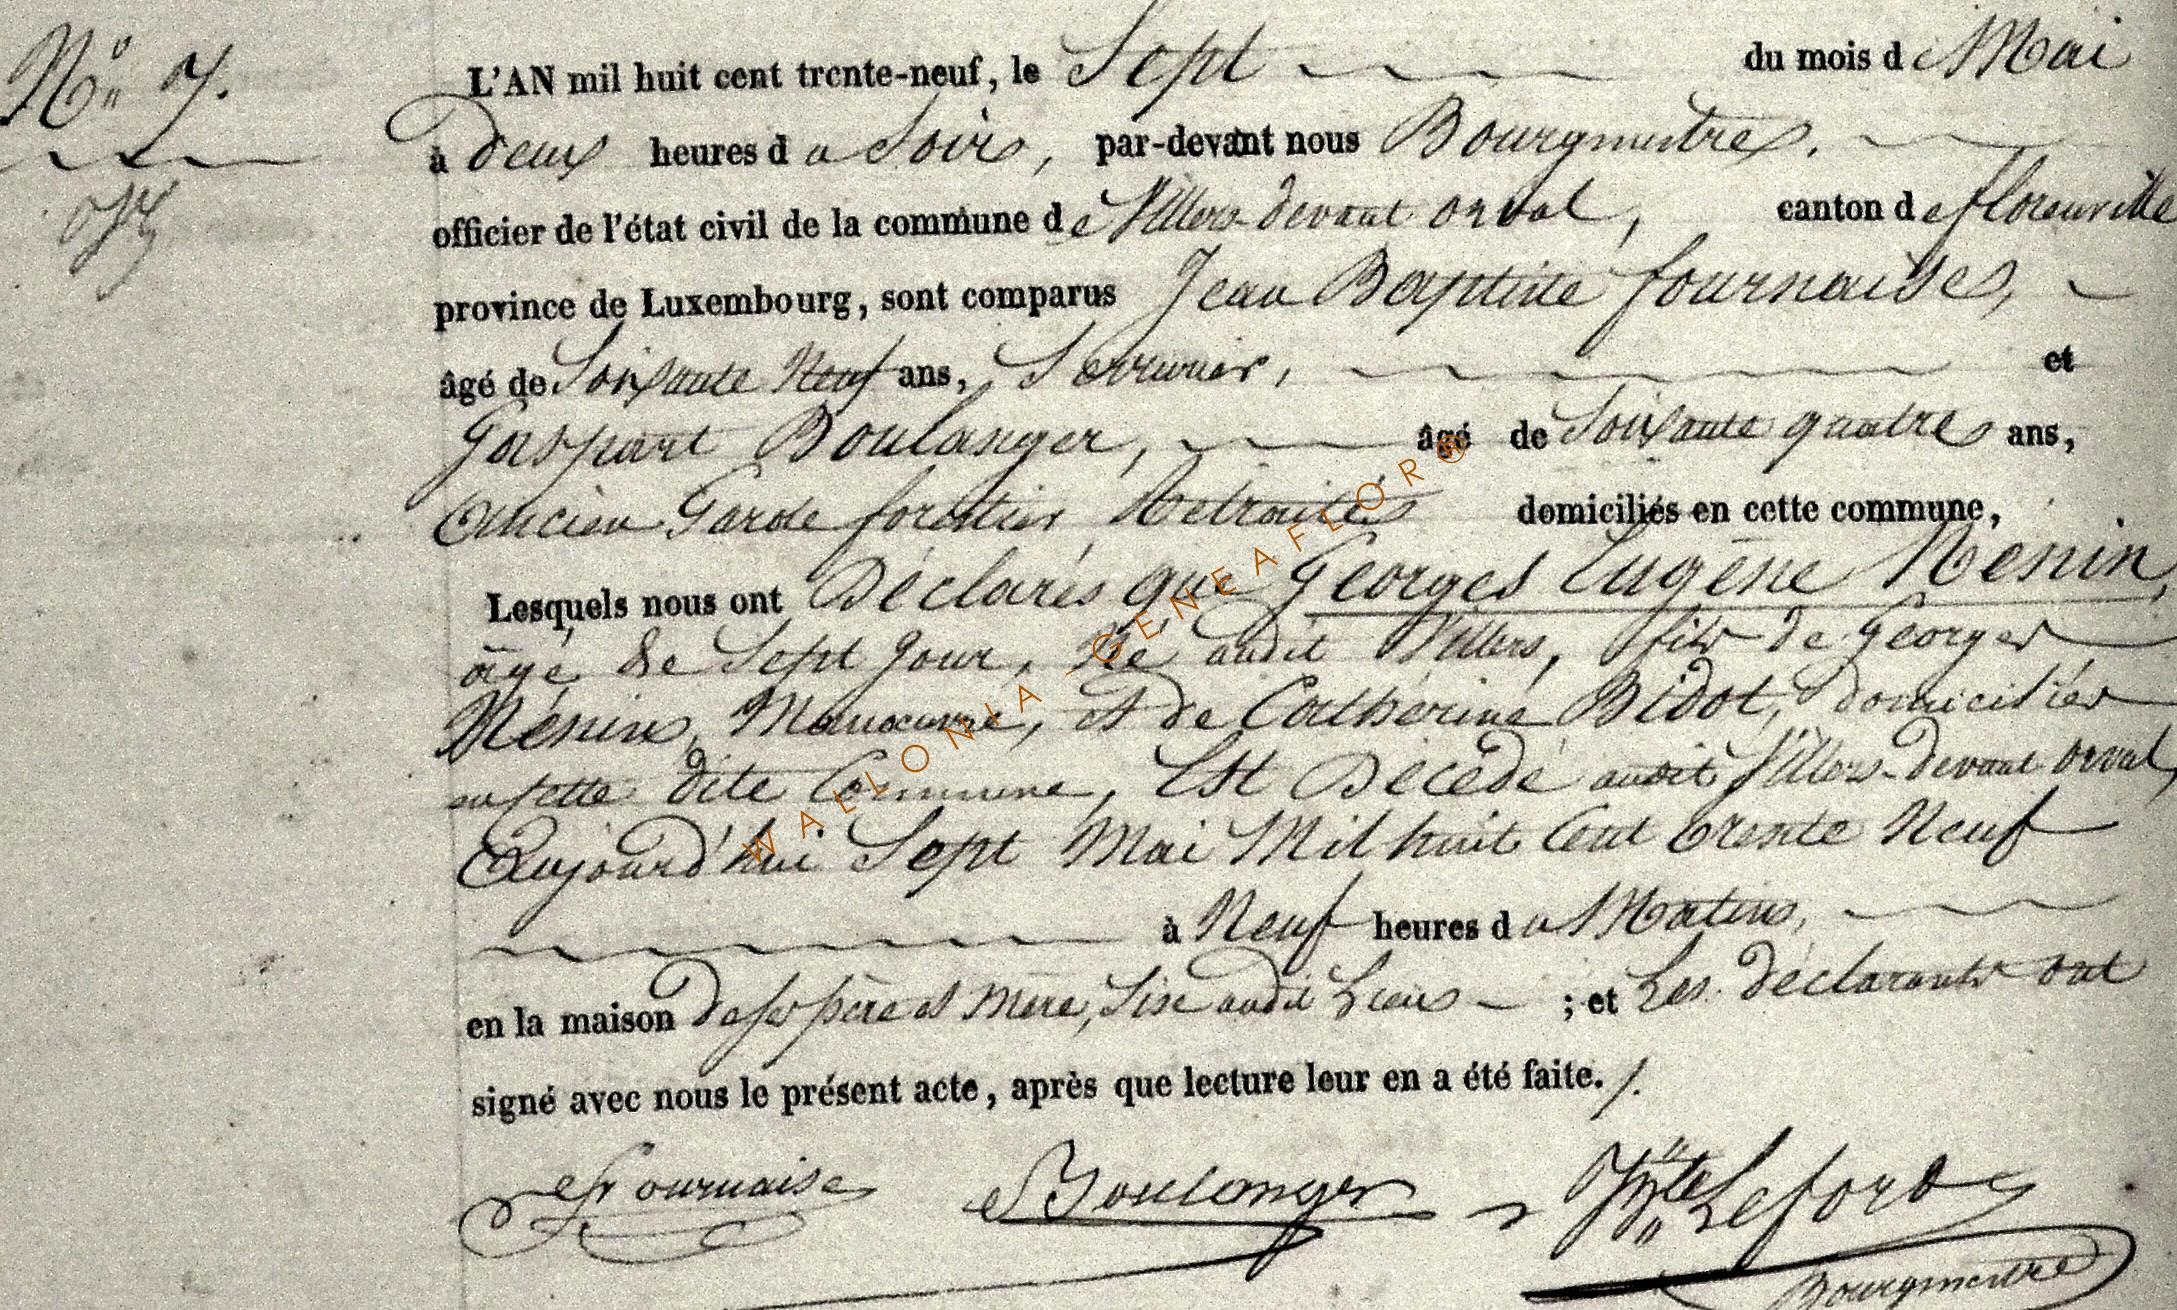 N° 7.
L'AN mil huit cent trente-neuf, le Sept du mois de Mai
à deux heures du Soir, par-devant nous Bourgmestre.
officier de l'état civil de la commune de Villers devant orval, canton de florenville
province de Luxembourg, sont comparus Jean Baptiste fournaise,
âgé de Soixante Neuf ans, Serrurier, et
Gaspart Boulanger, âgé de Soixante quatre ans,
Ancien Garde forestier Retraités domiciliés en cette commune,
Lesquels nous ont Déclarés que Georges Eugène Nenin,
âgé de Sept jour, Né audit Villers, fils de Georges
Nénin, Manoeuvre, et de Catherine Bidot, domiciliés
en cette dite Commune, Est Décédé audit Villers-devant orval,
Aujourd'hui Sept Mai Mil huit Cent trente Neuf
à Neuf heures du Matin,
en la maison de ses père et Mère, Sise audit Lieu ; et Les déclarants ont
signé avec nous le présent acte, après que lecture leur en a été faite. /.
Fournaise Boulanger Lefort
Bourgmestre
WALLONIA_GENEAFLOR®